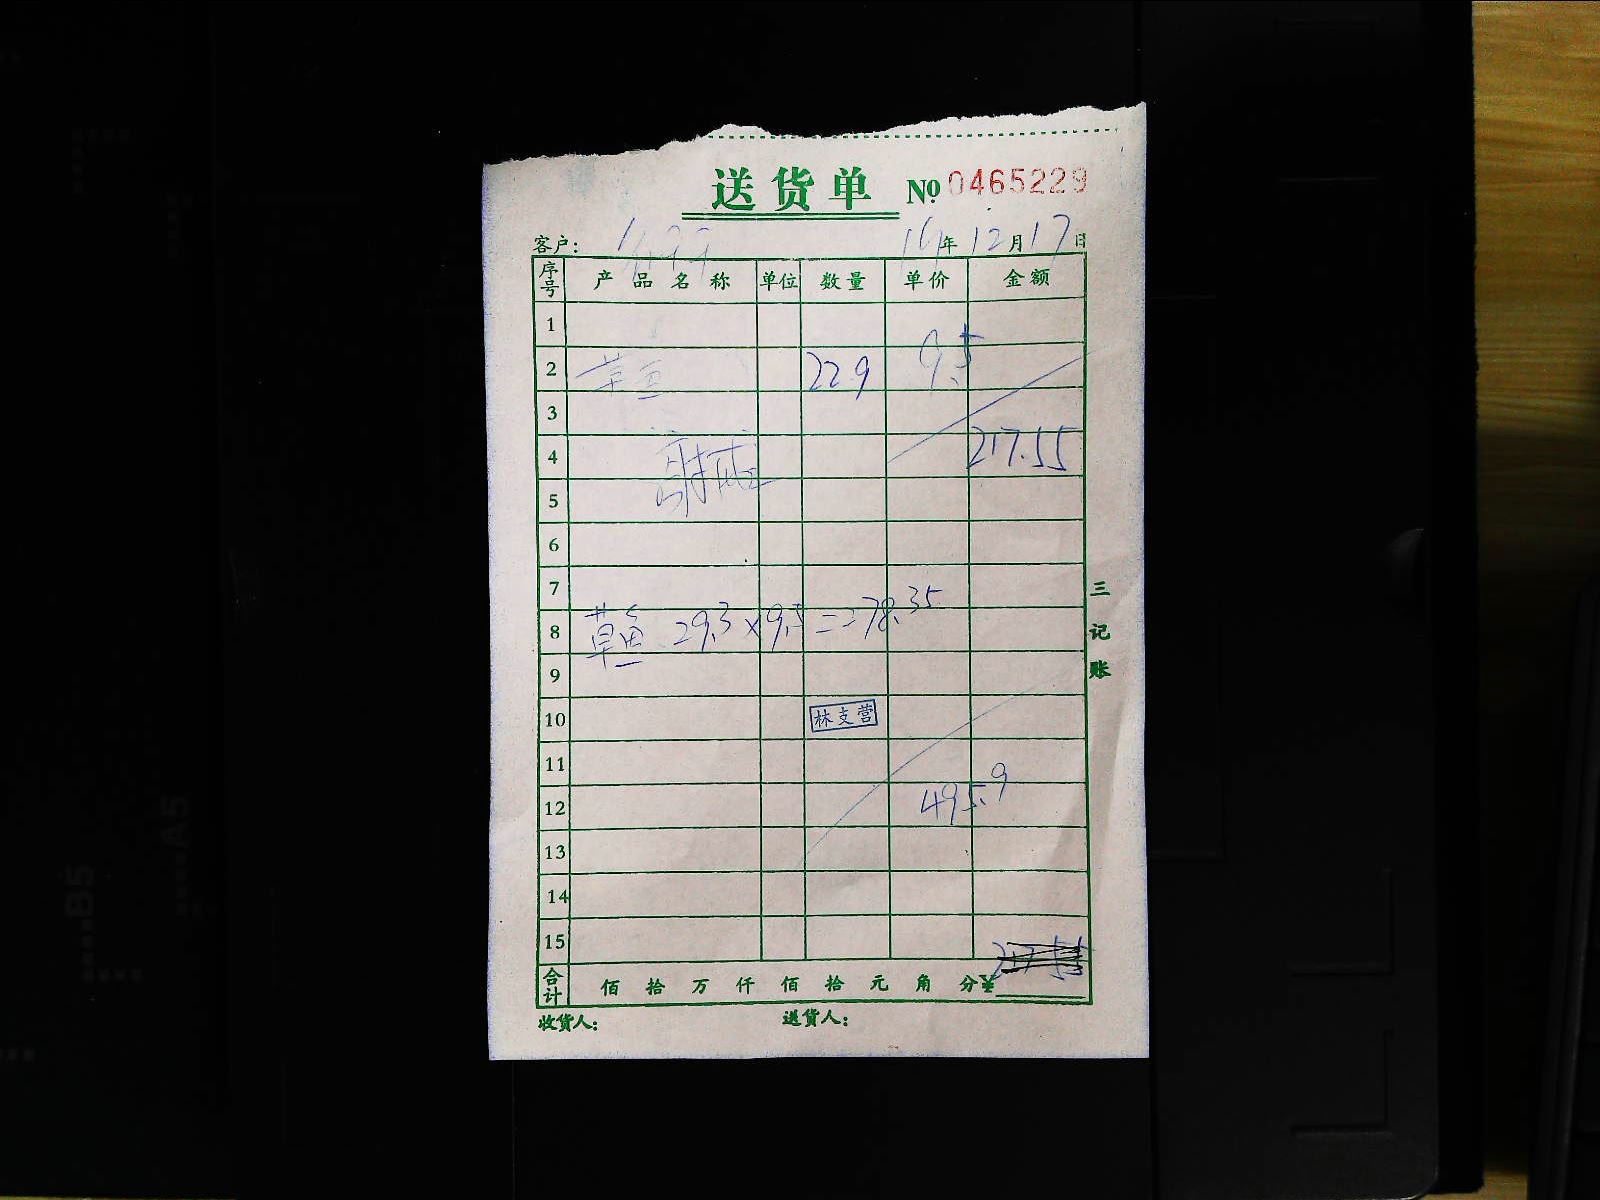 送货单 No 0465229
客户: 年 12月17日
序号 产品名称 单位 数量 单价 金额
1
2 草鱼 22.9 9.5
3
4 217.55
5
6
7
8 草鱼 29.3×9.5=278.35
9
10 林支营
11
12 495.9
13
14
15
合计 佰 拾 万 仟 佰 拾 元 角 分¥
收货人: 送货人:
三记账
B5
A5